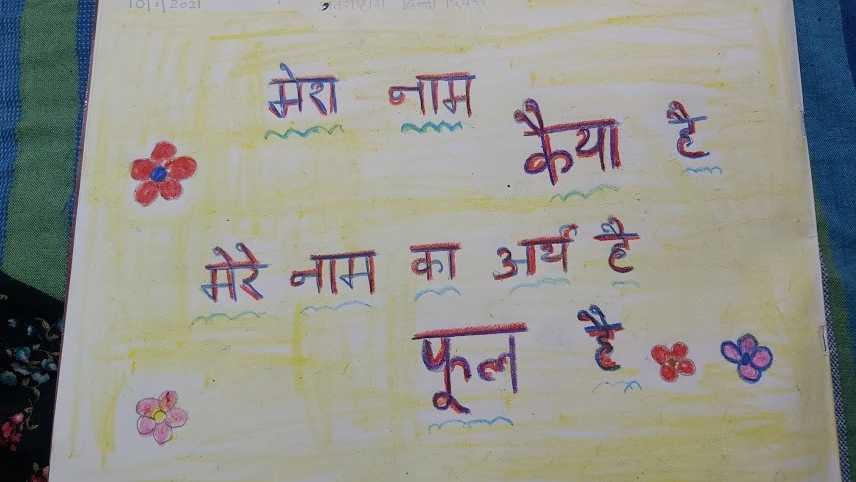 10/1/2021 हिन्दी दिवस
मेरा नाम
कैया है
मेरे नाम का अर्थ है
फूल है